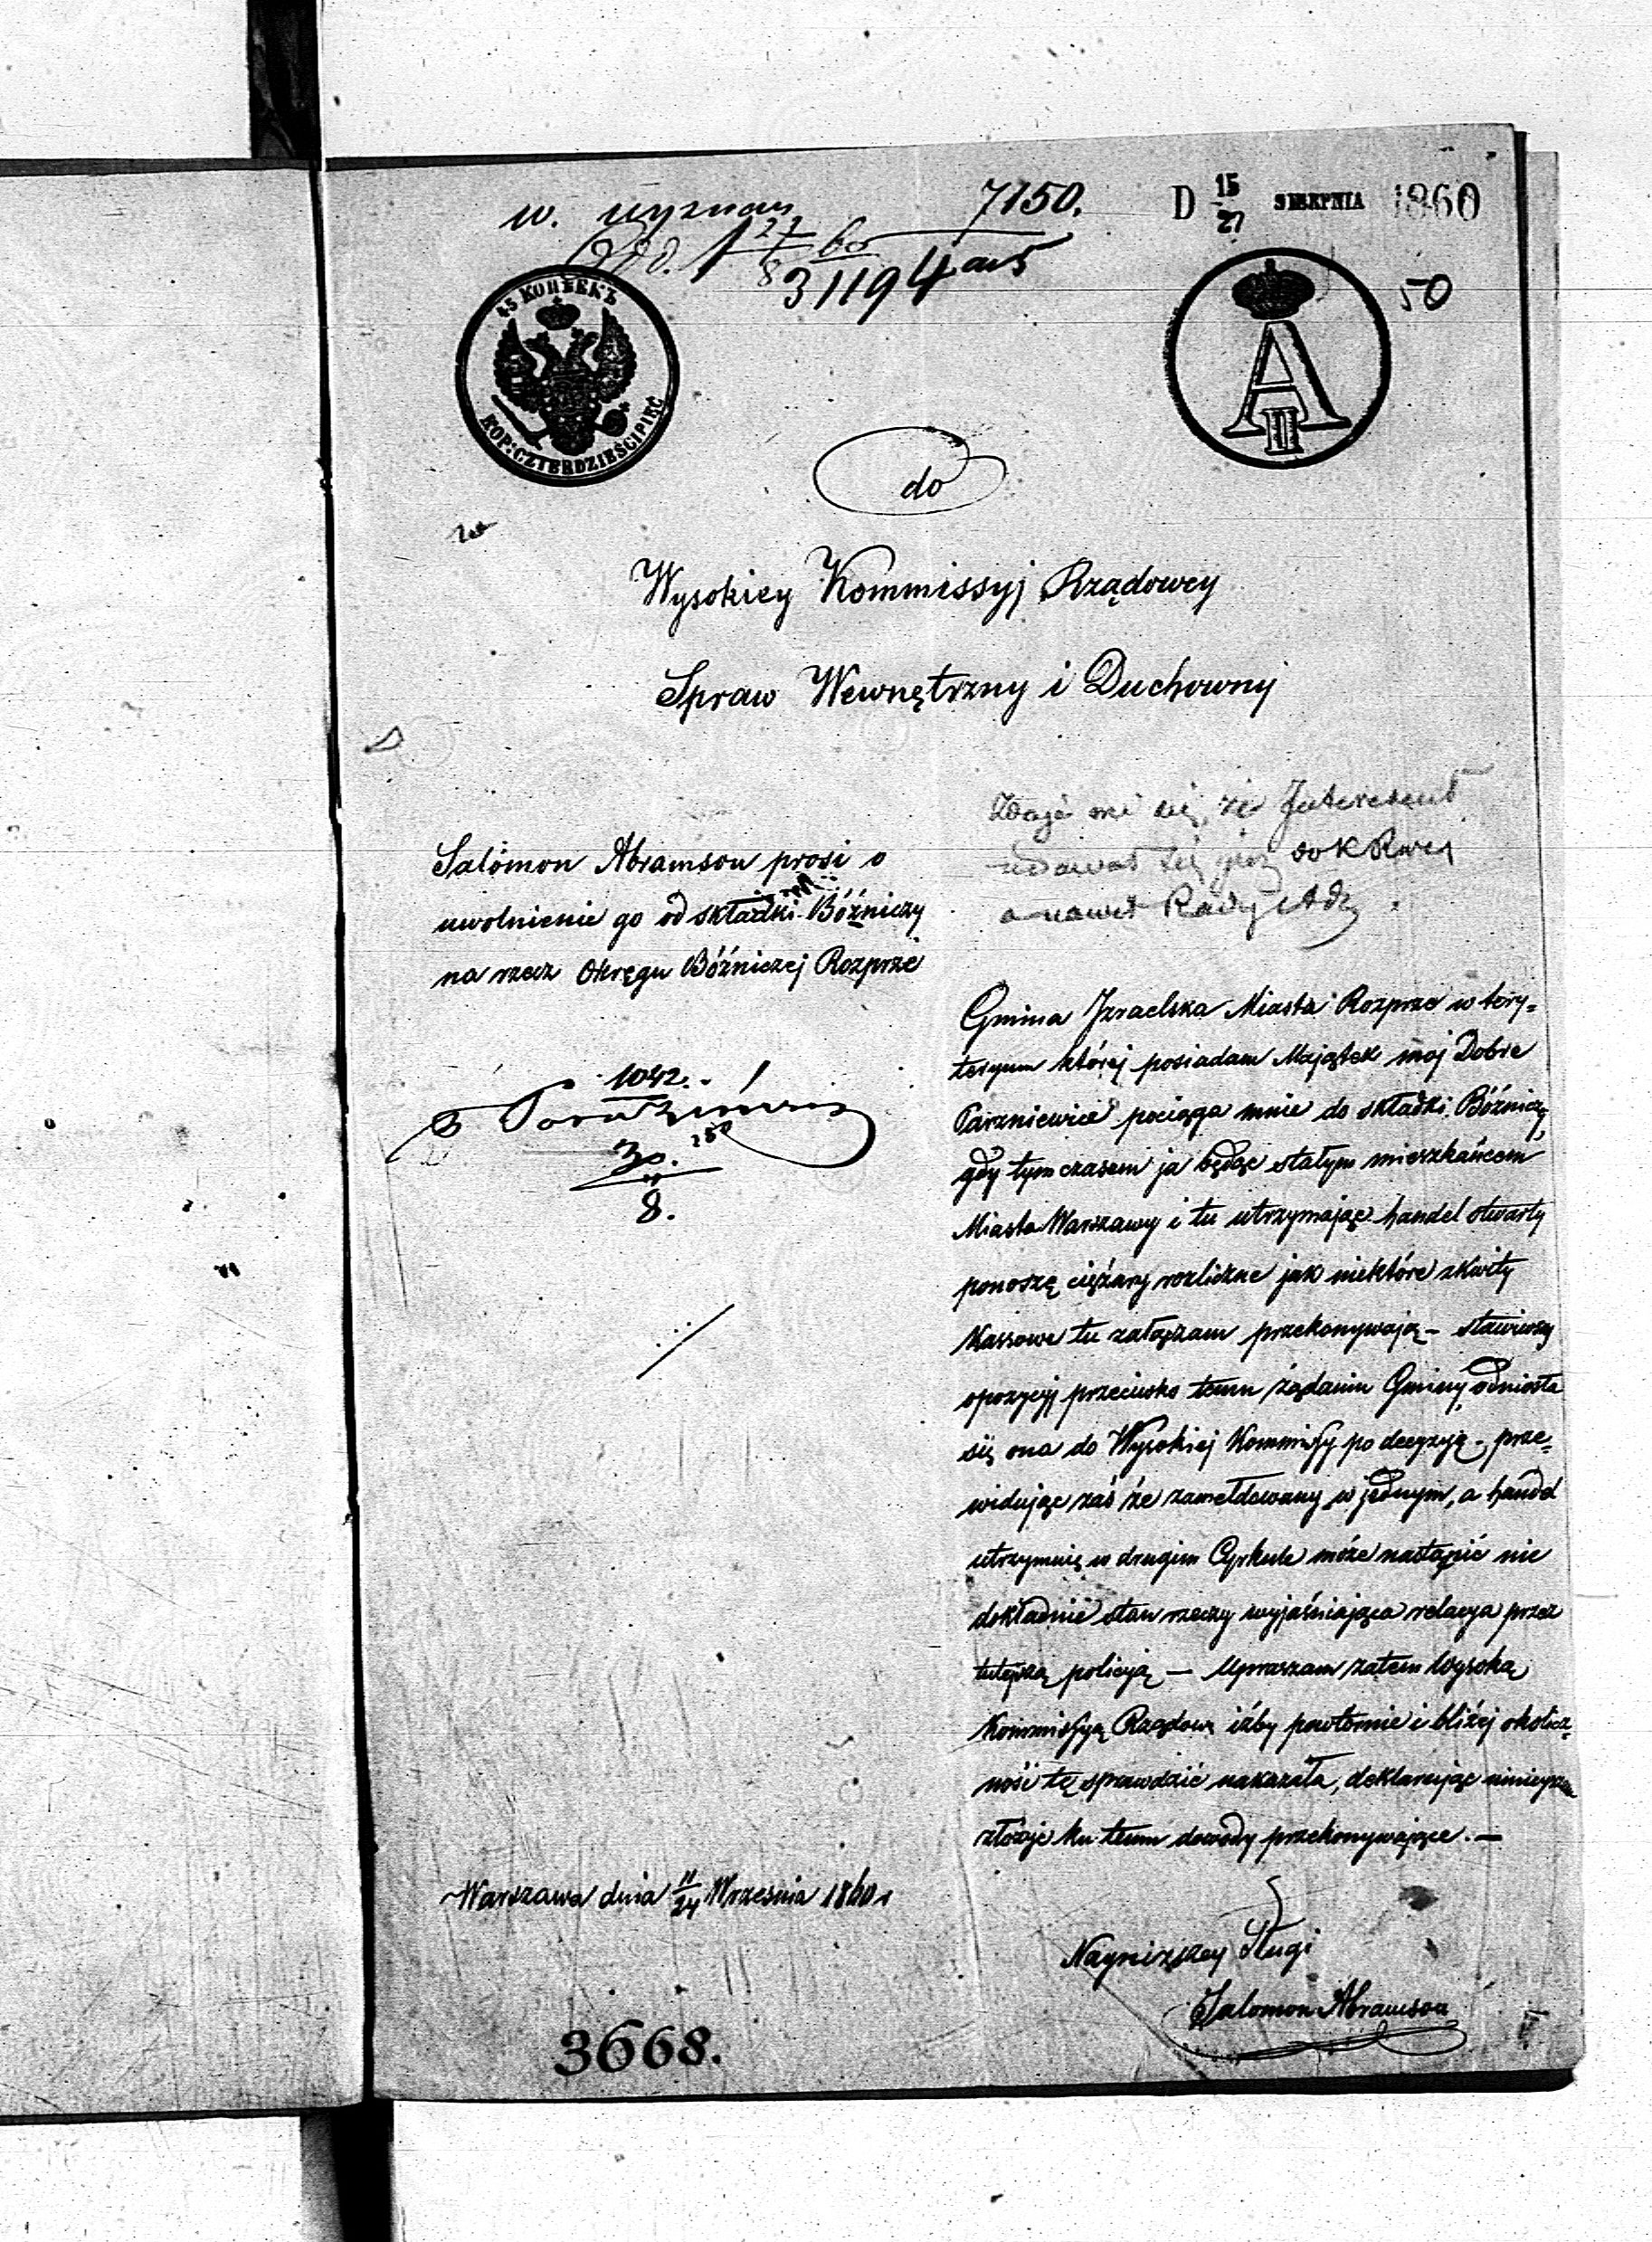 w. wyznań 7150.
D 15/27 SIERPNIA 1860
31194
50
45 КОПѢЕКЪ
KOP: CZTERDZIEŚCI PIĘĆ
A II
do
Wysokiey Kommissyj Rządowey
Spraw Wewnętrzny i Duchowny
Zdaje mi się, że Interesent
udawał się już do K Rząd
a nawet Rady Adm
Salomon Abramson prosi o
uwolnienie go od składki Bóżniczy
na rzecz Okręgu Bóźniczej Rozprze
1042.
30.
8.
Gmina Izraelska Miasta Rozprze w tery=
toryum której posiadam Majątek moj Dobre
Parzniewice pociąga mnie do składki Bóżniczy,
gdy tym czasem ja będąc stałym mieszkańcem
Miasta Warszawy i tu utrzymując handel otwarty
ponoszę ciężary rozliczne jak niektóre zkwity
Kassowe tu załączam przekonywają – stawiwszy
opozycyj przeciwko temu żądaniu Gminy, odniosła
się ona do Wysokiej Kommissy po decyzyą – prze=
widując zaś że zameldowany w jednym, a handel
utrzymuię w drugim Cyrkule może nastąpić nie
dokładnie stan rzeczy wyjaśniająca relacya przez
tutejszą policyą — Upraszam zatem Wysoką
Kommissyą Rządową iżby powtórnie i bliżej okolicz=
ność tę sprawdzić nakazała, deklarując niniejszem
złożyć ku temu dowody przekonywające. —
Warszawa dnia 11/24 Września 1860 r
Nayniższey Sługi
Salomon Abramson
3668.